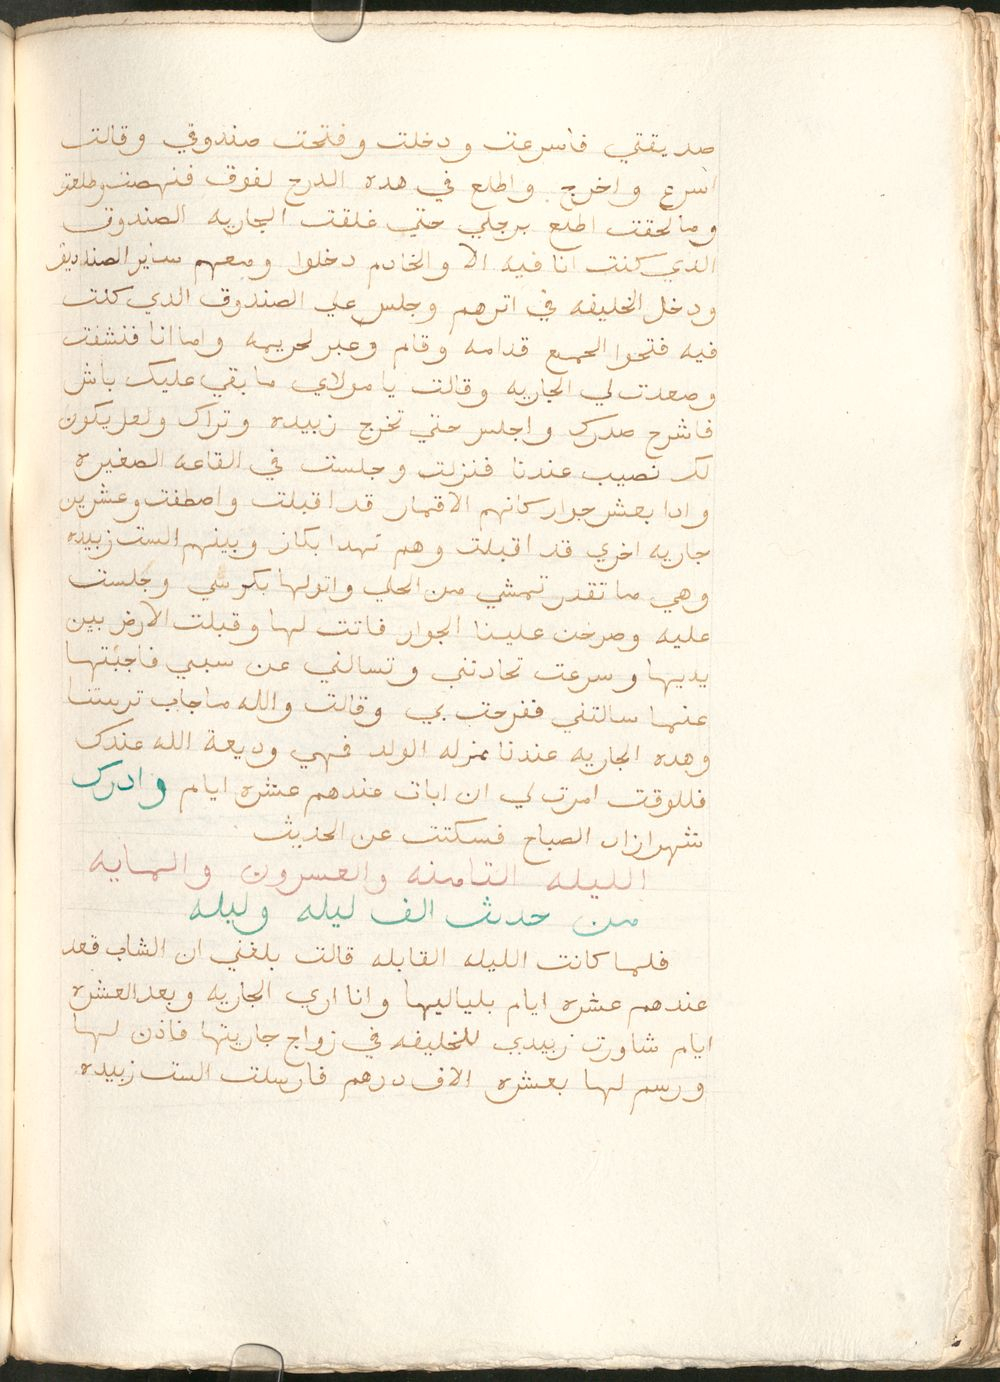 صديقتي فاسرعت ودخلت وفتحت صندوقي وقالت
اسرع واخرج واطلع في هده الدرج لفوق فنهضت وطلعت
وما لحقت اطلع برجلي حتي غلقت الجاريه الصندوق
الدي كنت انا فيه الا والخادم دخلوا ومعهم ساير الصناديق
ودخل الخليفه في اترهم وجلس علي الصندوق الدي كنت
فيه فتحوا الجميع قدامه وقام وعبر لحريمه واما انا فنشفت
وصعدت لي الجاريه وقالت يا مولاي ما بقي عليك باش
فاشرح صدرك واجلس حتي تخرج زبيده وتراك ولعل يكون
لك نصيب عندنا فنزلت وجلست في القاعه الصغيره
وادا بعشر جوار كانهم الاقمار قد اقبلت واصطفت وعشرين
جاريه اخري قد اقبلت وهم نهدا بكار وبينهم الست زبيده
وهي ما تقدر تمشي من الحلي واتولها بكرسي وجلست
عليه وصرخت علينا الجوار فاتت لها وقبلت الارض بين
يديها وسرعت تحادتني وتسالني عن سببي فاجبتها
عنما سالتني ففرحت بي وقالت والله ما خاب تربيتنا
وهده الجاريه عندنا بمنزله الولد فهي وديعة الله عندك
فللوقت امرت لي ان ابات عندهم عشره ايام وادرك
شهرازاد الصباح فسكتت عن الحديث
الليله التامنه والعسرون والمايه
من حدث الف ليله وليله
فلما كانت الليله القابله قالت بلغني ان الشاب قعد
عندهم عشره ايام بلياليها وانا اري الجاريه وبعد العشره
ايام شاورت زبيدي للخليفه في زواج جاريتها فاذن لها
ورسم لها بعشره الاف درهم فارسلت الست زبيده